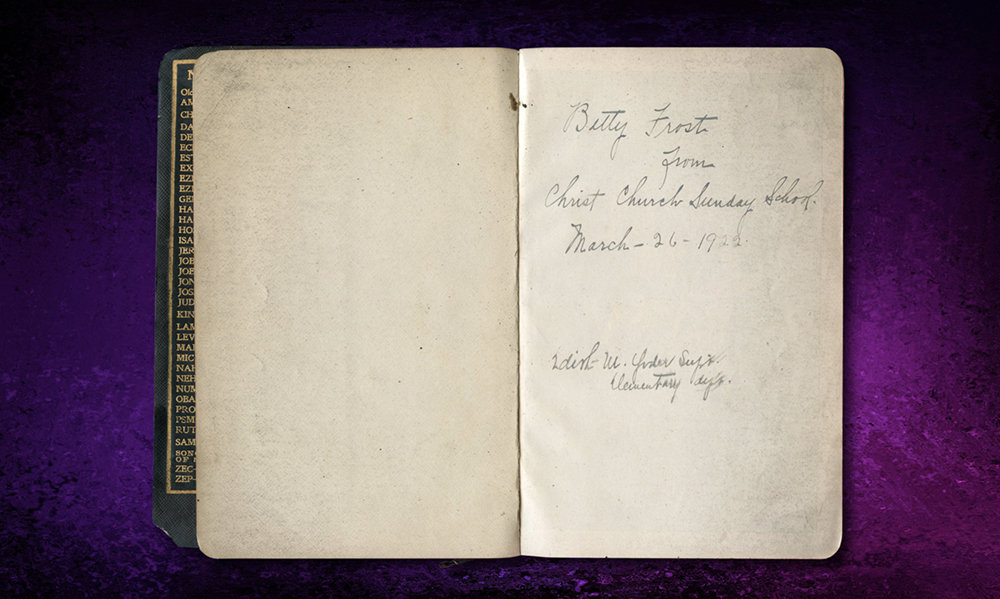 N
Old
AM
CH
DA
DE
EC
EST
EX
EZ
EZ
GE
HA
HA
HO
ISA
JER
JOB
JOE
JON
JOS
JUD
KIN
LAM
LEV
MAL
MIC
NAH
NEH
NUM
OBA
PRO
PSM
RUT
SAM
SONG
OF
ZEC-
ZEP-
Betty Frost
from
Christ Church Sunday School.
March - 26 - 1922.
Edith M. Yoder Supt.
Elementary dept.